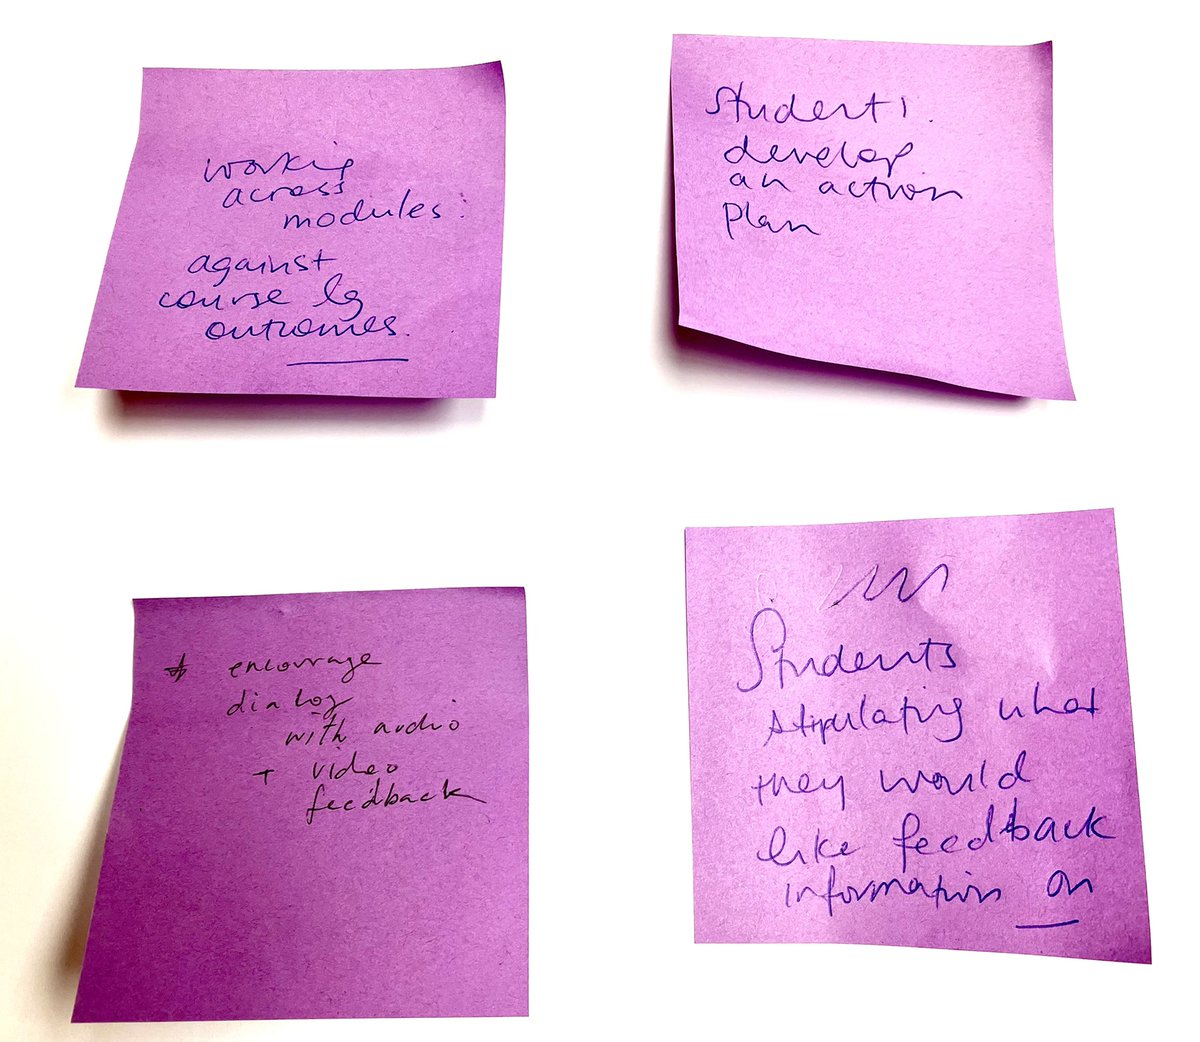 working
across
modules:
against
course lg
outcomes.
students
develop
an action
plan
* encourage
dialog
with audio
+ video
feedback
Students
stipulating what
they would
like feedback
information on